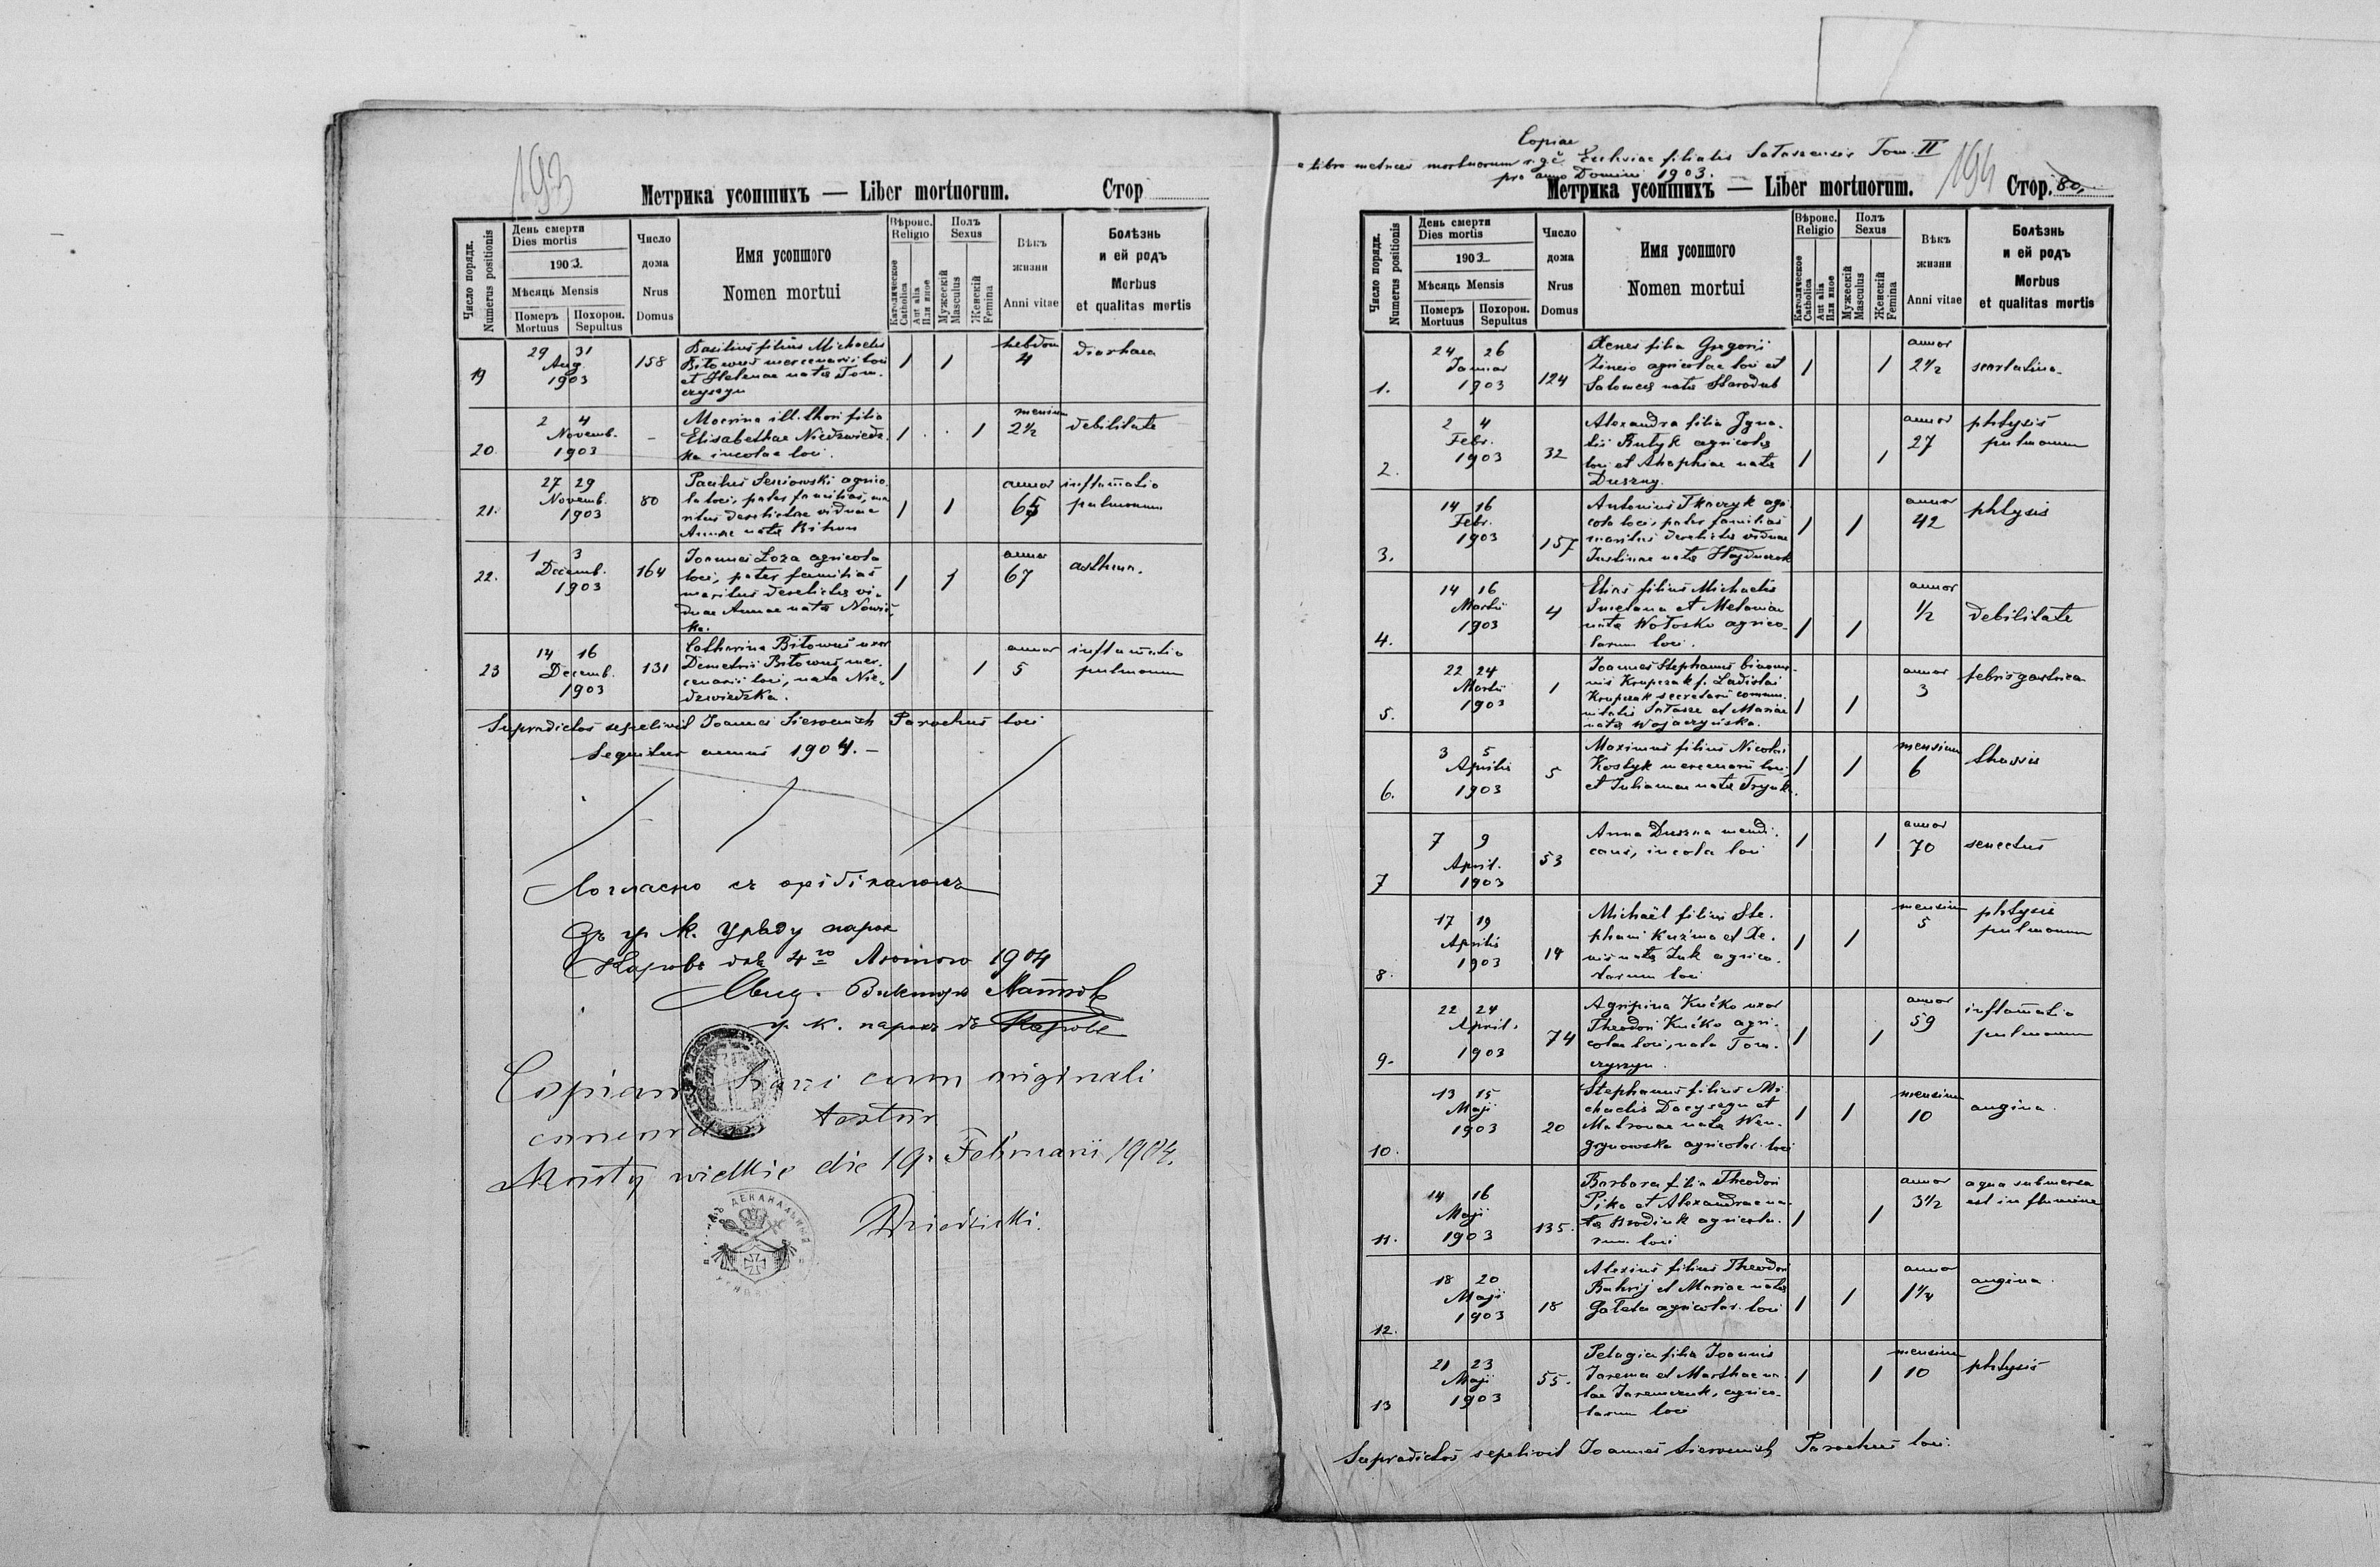 193
Метрика усопшихъ — Liber mortuorum. Стор
Число порядк. Numerus positionis
День смерти Dies mortis
1903.
Мѣсяць Mensis
Померъ Mortuus
Похорон. Sepultus
Число дома Nrus Domus
Имя усопшого
Nomen mortui
Вѣроис. Religio
Католическое Catholica
Aut alia Или иное
Полъ Sexus
Мужескій Masculus
Женскій Femina
Вѣкъ жизни Anni vitae
Болѣзнь и ей родъ
Morbus et qualitas mortis
19 29 31 Aug. 1903 158
Basilius filius Michaelis
Bitowus mercenarii loci
et Helenae nata Tom-
czyszyn
1 1 hebdom 4 diarhaea
20 2 4 Novemb. 1903 -
Macrina ill. thori filia
Elisabethae Niedzwiedz-
ka incolae loci.
1 1 mensium 2½ debilitate
21. 27 29 Novemb. 1903 80
Paulus Seniowski agrico-
la loci, pater familias, ma
ritus derelictae viduae
Annae nata Bihun
1 1 annor inflamatio
pulmonum
22. 1 3 Decemb. 1903 164
Joannes Łoza agricola
loci, pater familias
maritus derelicta vi-
duae Annae nata Nowic-
ka.
1 1 annor 67 asthma.
23 14 16 Decemb. 1903 131
Catharina Bitowus uxor
Demetrii Bitowus mer-
cenarii loci, nata Nie-
dzwiedzka.
1 1 annor 5 inflamatio
pulmonum
Supradictos sepelivit Joannes Parochus loci
Sequitur annus 1904. –
Согласно съ
Зъ гр. к. Уряду парох
Каровѣ дня 4го Лютого 1904
Виктор
гр. к. парохъ въ Карове
Copiam hanc cum originali
concordare testor
Mosty wielkie die 19. Februarii 1904.
ДЕКАНАЛЬНЫЙ
Copiae
e libro metrices mortuorum r. gc. Ecclesiae filialis Sałaszensis Tom. II
pro anno Domini 1903.
194
Метрика усопшихъ — Liber mortuorum. Стор. 80.
Число порядк. Numerus positionis
День смерти Dies mortis
1903
Мѣсяць Mensis
Померъ Mortuus
Похорон. Sepultus
Число дома Nrus Domus
Имя усопшого
Nomen mortui
Вѣроис. Religio
Католическое Catholica
Aut alia Или иное
Полъ Sexus
Мужескій Masculus
Женскій Femina
Вѣкъ жизни Anni vitae
Болѣзнь и ей родъ
Morbus et qualitas mortis
1. 24 26 Januar 1903 124
Xenes filia Gregorii
agricolae loci et
Salomeae nata Starodub
1 1 annor 2½ scarlatina
2. 2 4 Febr. 1903 32
Alexandra filia Igna-
tii Butyk agricola
loci et nata
Duszny.
1 1 annor 27 phtysis
pulmonum
3. 14 16 Febr. 1903 157
Antonius Tkaczyk agri
cola loci, pater familias
maritus derelicta viduae
Justinae nata Hajduczok
1 1 annor 42 phtysis
4. 14 16 Martii 1903 4
Elias filius Michaelis
Smetana et Melaniae
nata Wołosko agrico-
larum loci.
1 1 annor ½ debilitate
5. 22 24 Martii 1903 1
Joannes Stephanus binomi-
nis Krupczak f. Ladislai
Krupczak secretarii commu-
nitatis Sałasze et Mariae
nata Wojaczyńska.
1 1 annor 3 febris gastrica
6. 3 5 Aprilis 1903 5
Maximus filius Nicolai
Kostyk mercenarii loci,
et Julianae nata
1 1 mensium 6
7 7 9 April. 1903 53
Anna Duszna mendi-
cans, incola loci
1 1 annor 70 senectus
8. 17 19 Aprilis 1903 14
Michaël filius Ste-
phani Kuźma et Xe-
nis nata Żuk agrico-
larum loci
1 1 mensium 5 phtysis
pulmonum
9. 22 24 April. 1903 74
Agripina Kućko uxor
Theodori Kućko agri-
colae loci, nata Tom-
czyszyn.
1 1 annor 59 inflamatio
pulmonum
10. 13 15 Maji 1903 20
Stephanus filius Mi
chaelis Dacyszyn et
Matronae nata Wen-
grynowska agricolar. loci
1 1 mensium 10 angina.
11. 14 16 Maji 1903 135.
Barbara filia Theodori
Pika et Alexandrae na-
ta Brodiuk agricola-
rum loci
1 1 annor 3½ aqua submersa
est in flumine
12. 18 20 Maji 1903 18
Alexius filius Theodori
Bahrij et Mariae nata
Gałata agricolar. loci
1 1 annor 1¼ angina.
13 21 23 Maji 1903 55.
Pelagia filia Joannis
Jarema et Marthae na-
tae Jaremczuk, agrico-
larum loci
1 1 mensium 10 phtysis
Supradictos sepelivit Joannes Parochus loci.